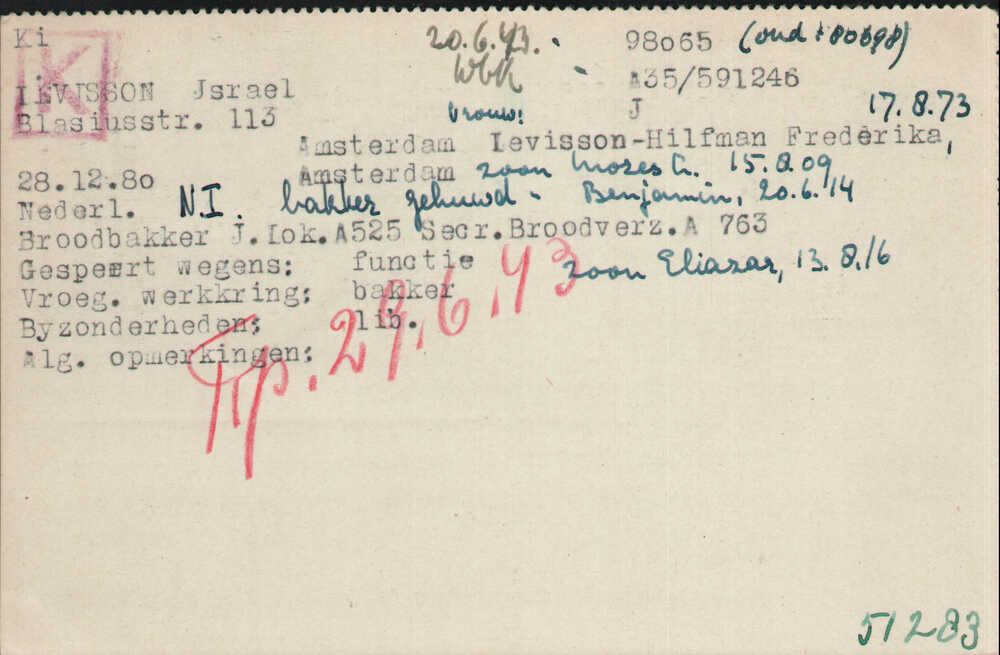 Ki 20.6.43. 98065 (oud: 80698)
K WbK A35/591246
LEVISSON Jsrael vrouw: J 17.8.73
Blasiusstr. 113 Amsterdam Levisson-Hilfman Frederika,
28.12.80 Amsterdam zoon Mozes A. 15.8.09,
Nederl. N.I. bakker gehuwd - Benjamin, 20.6.14
Broodbakker J.Lok.A525 Secr.Broodverz.A 763
Gespeert wegens: functie zoon Eliazar, 13.8.16
Vroeg. werkkring: bakker
Byzonderheden: lib.
Alg. opmerkingen:
Trp. 29.6.43
51283